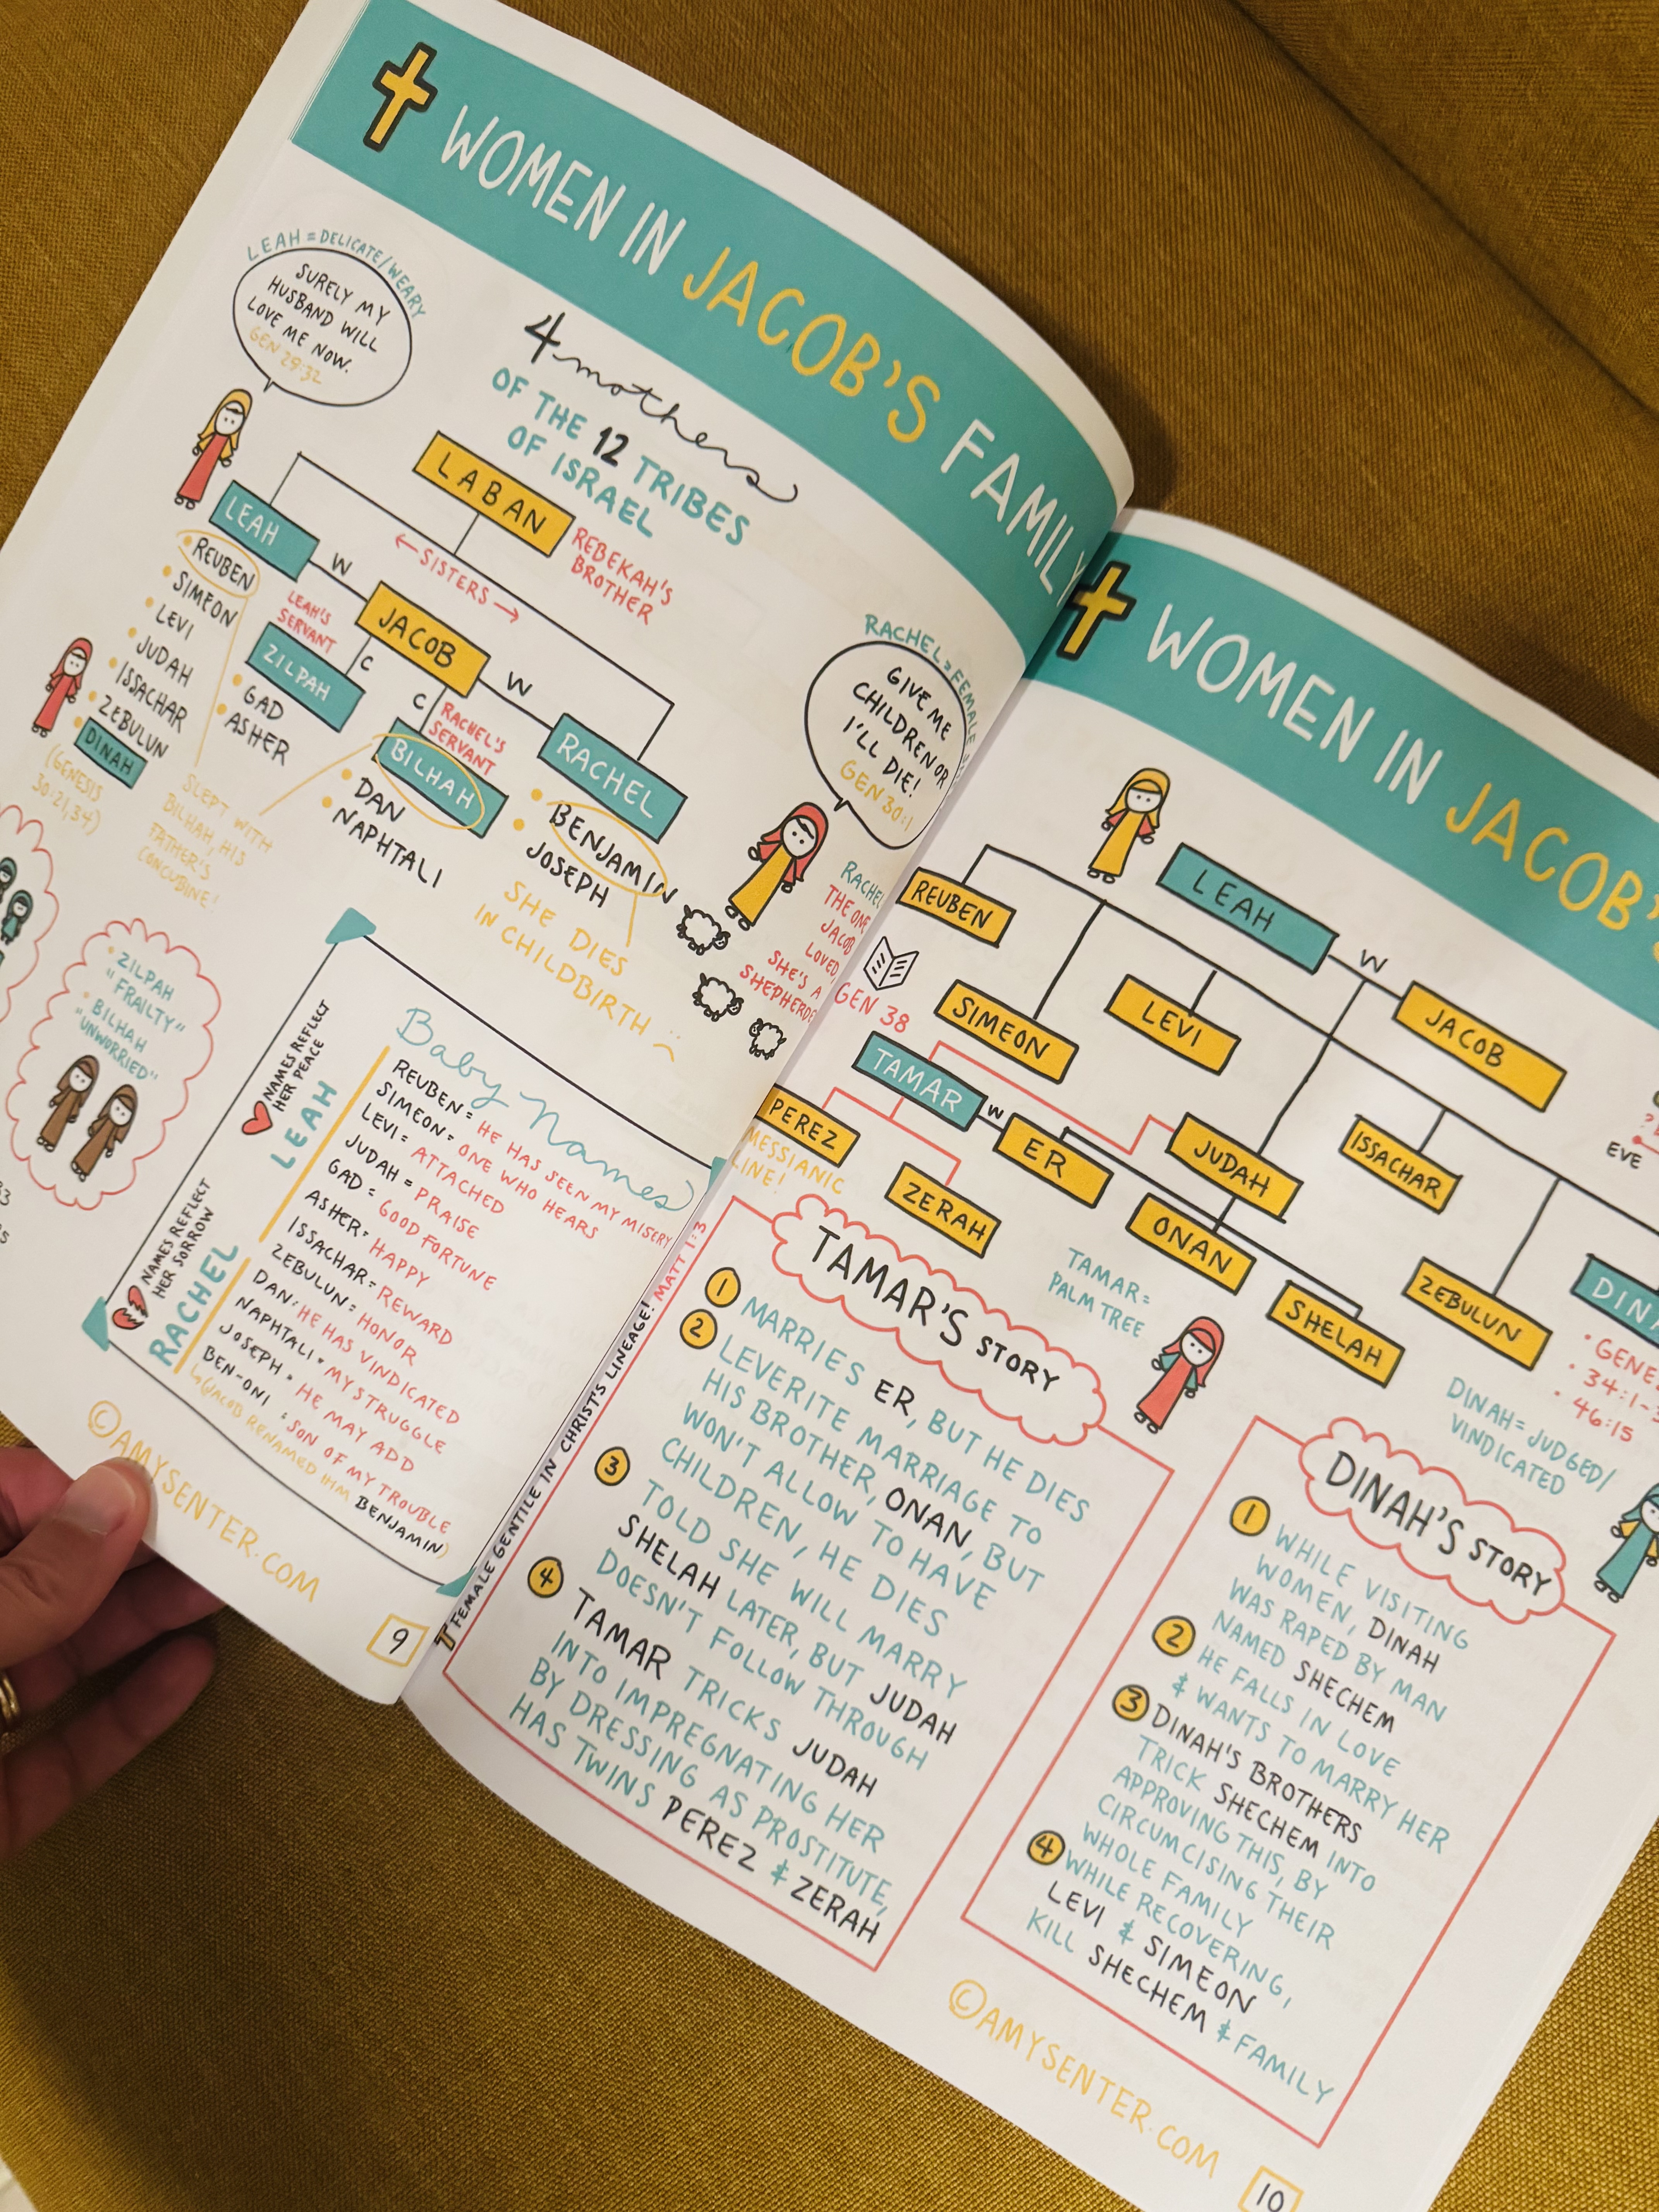 WOMEN IN JACOB'S FAMILY
LEAH = DELICATE/WEARY
SURELY MY
HUSBAND WILL
LOVE ME NOW.
GEN 29:32
4 mothers
OF THE 12 TRIBES
OF ISRAEL
LABAN
REBEKAH'S
BROTHER
← SISTERS →
LEAH
W
JACOB
W
RACHEL
• REUBEN
• SIMEON
• LEVI
• JUDAH
• ISSACHAR
• ZEBULUN
• DINAH
(GENESIS
30:21,34)
LEAH'S
SERVANT
C
ZILPAH
• GAD
• ASHER
C
RACHEL'S
SERVANT
BILHAH
• DAN
• NAPHTALI
SLEPT WITH
BILHAH, HIS
FATHER'S
CONCUBINE!
• BENJAMIN
• JOSEPH
SHE DIES
IN CHILDBIRTH :(
RACHEL = FEMALE
GIVE ME
CHILDREN OR
I'LL DIE!
GEN 30:1
RACHEL
THE ONE
JACOB
LOVED
SHE'S A
• ZILPAH
"FRAILTY"
• BILHAH
"UNWORRIED"
Baby Names
NAMES REFLECT
HER PEACE
LEAH
NAMES REFLECT
HER SORROW
RACHEL
REUBEN = HE HAS SEEN MY MISERY
SIMEON = ONE WHO HEARS
LEVI = ATTACHED
JUDAH = PRAISE
GAD = GOOD FORTUNE
ASHER = HAPPY
ISSACHAR = REWARD
ZEBULUN = HONOR
DAN = HE HAS VINDICATED
NAPHTALI = MY STRUGGLE
JOSEPH = HE MAY ADD
BEN-ONI = SON OF MY TROUBLE
↳(JACOB RENAMED IHM BENJAMIN)
©AMYSENTER.COM
9
WOMEN IN JACOB'S
LEAH
W
JACOB
REUBEN
SIMEON
LEVI
GEN 38
TAMAR
W
ER
JUDAH
ISSACHAR
EVE
PEREZ
MESSIANIC
LINE!
ZERAH
ONAN
SHELAH
ZEBULUN
TAMAR =
PALM TREE
• 46:15
DINAH = JUDGED/
VINDICATED
FEMALE GENTILE IN CHRIST'S LINEAGE! MATT 1:3
TAMAR'S STORY
1 MARRIES ER, BUT HE DIES
2 LEVERITE MARRIAGE TO
HIS BROTHER, ONAN, BUT
WON'T ALLOW TO HAVE
CHILDREN, HE DIES
3 TOLD SHE WILL MARRY
SHELAH LATER, BUT JUDAH
DOESN'T FOLLOW THROUGH
4 TAMAR TRICKS JUDAH
INTO IMPREGNATING HER
BY DRESSING AS PROSTITUTE,
HAS TWINS PEREZ & ZERAH
DINAH'S STORY
1 WHILE VISITING
WOMEN, DINAH
WAS RAPED BY MAN
NAMED SHECHEM
2 HE FALLS IN LOVE
& WANTS TO MARRY HER
3 DINAH'S BROTHERS
TRICK SHECHEM INTO
APPROVING THIS, BY
CIRCUMCISING THEIR
WHOLE FAMILY
4 WHILE RECOVERING,
LEVI & SIMEON
KILL SHECHEM & FAMILY
©AMYSENTER.COM
10